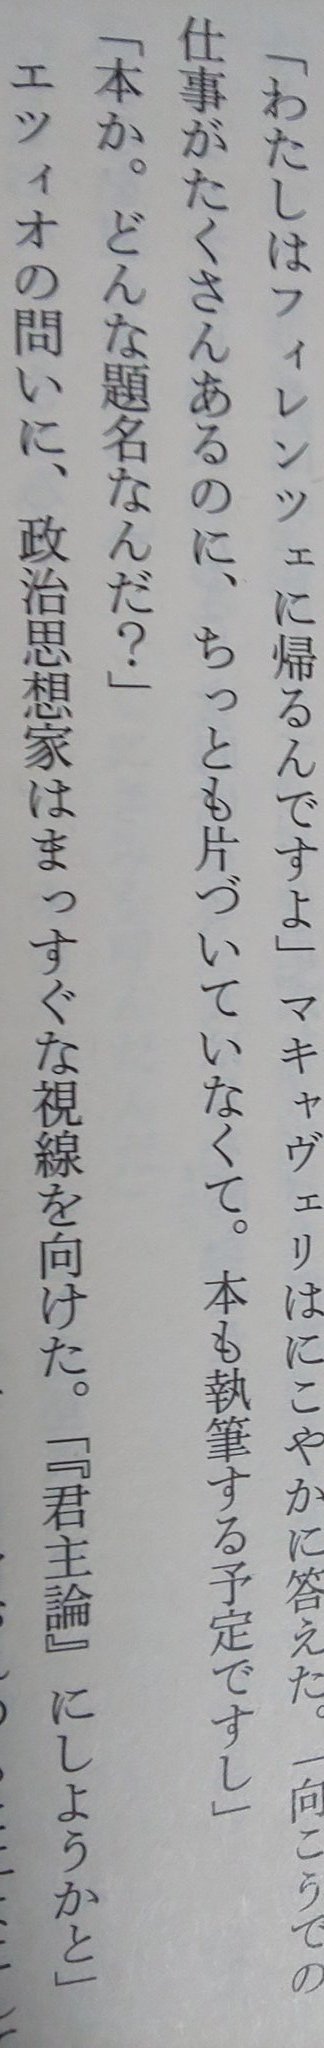 「わたしはフィレンツェに帰るんですよ」マキャヴェリはにこやかに答えた。「向こうでの
仕事がたくさんあるのに、ちっとも片づいていなくて。本も執筆する予定ですし」
「本か。どんな題名なんだ？」
エツィオの問いに、政治思想家はまっすぐな視線を向けた。「『君主論』にしようかと」